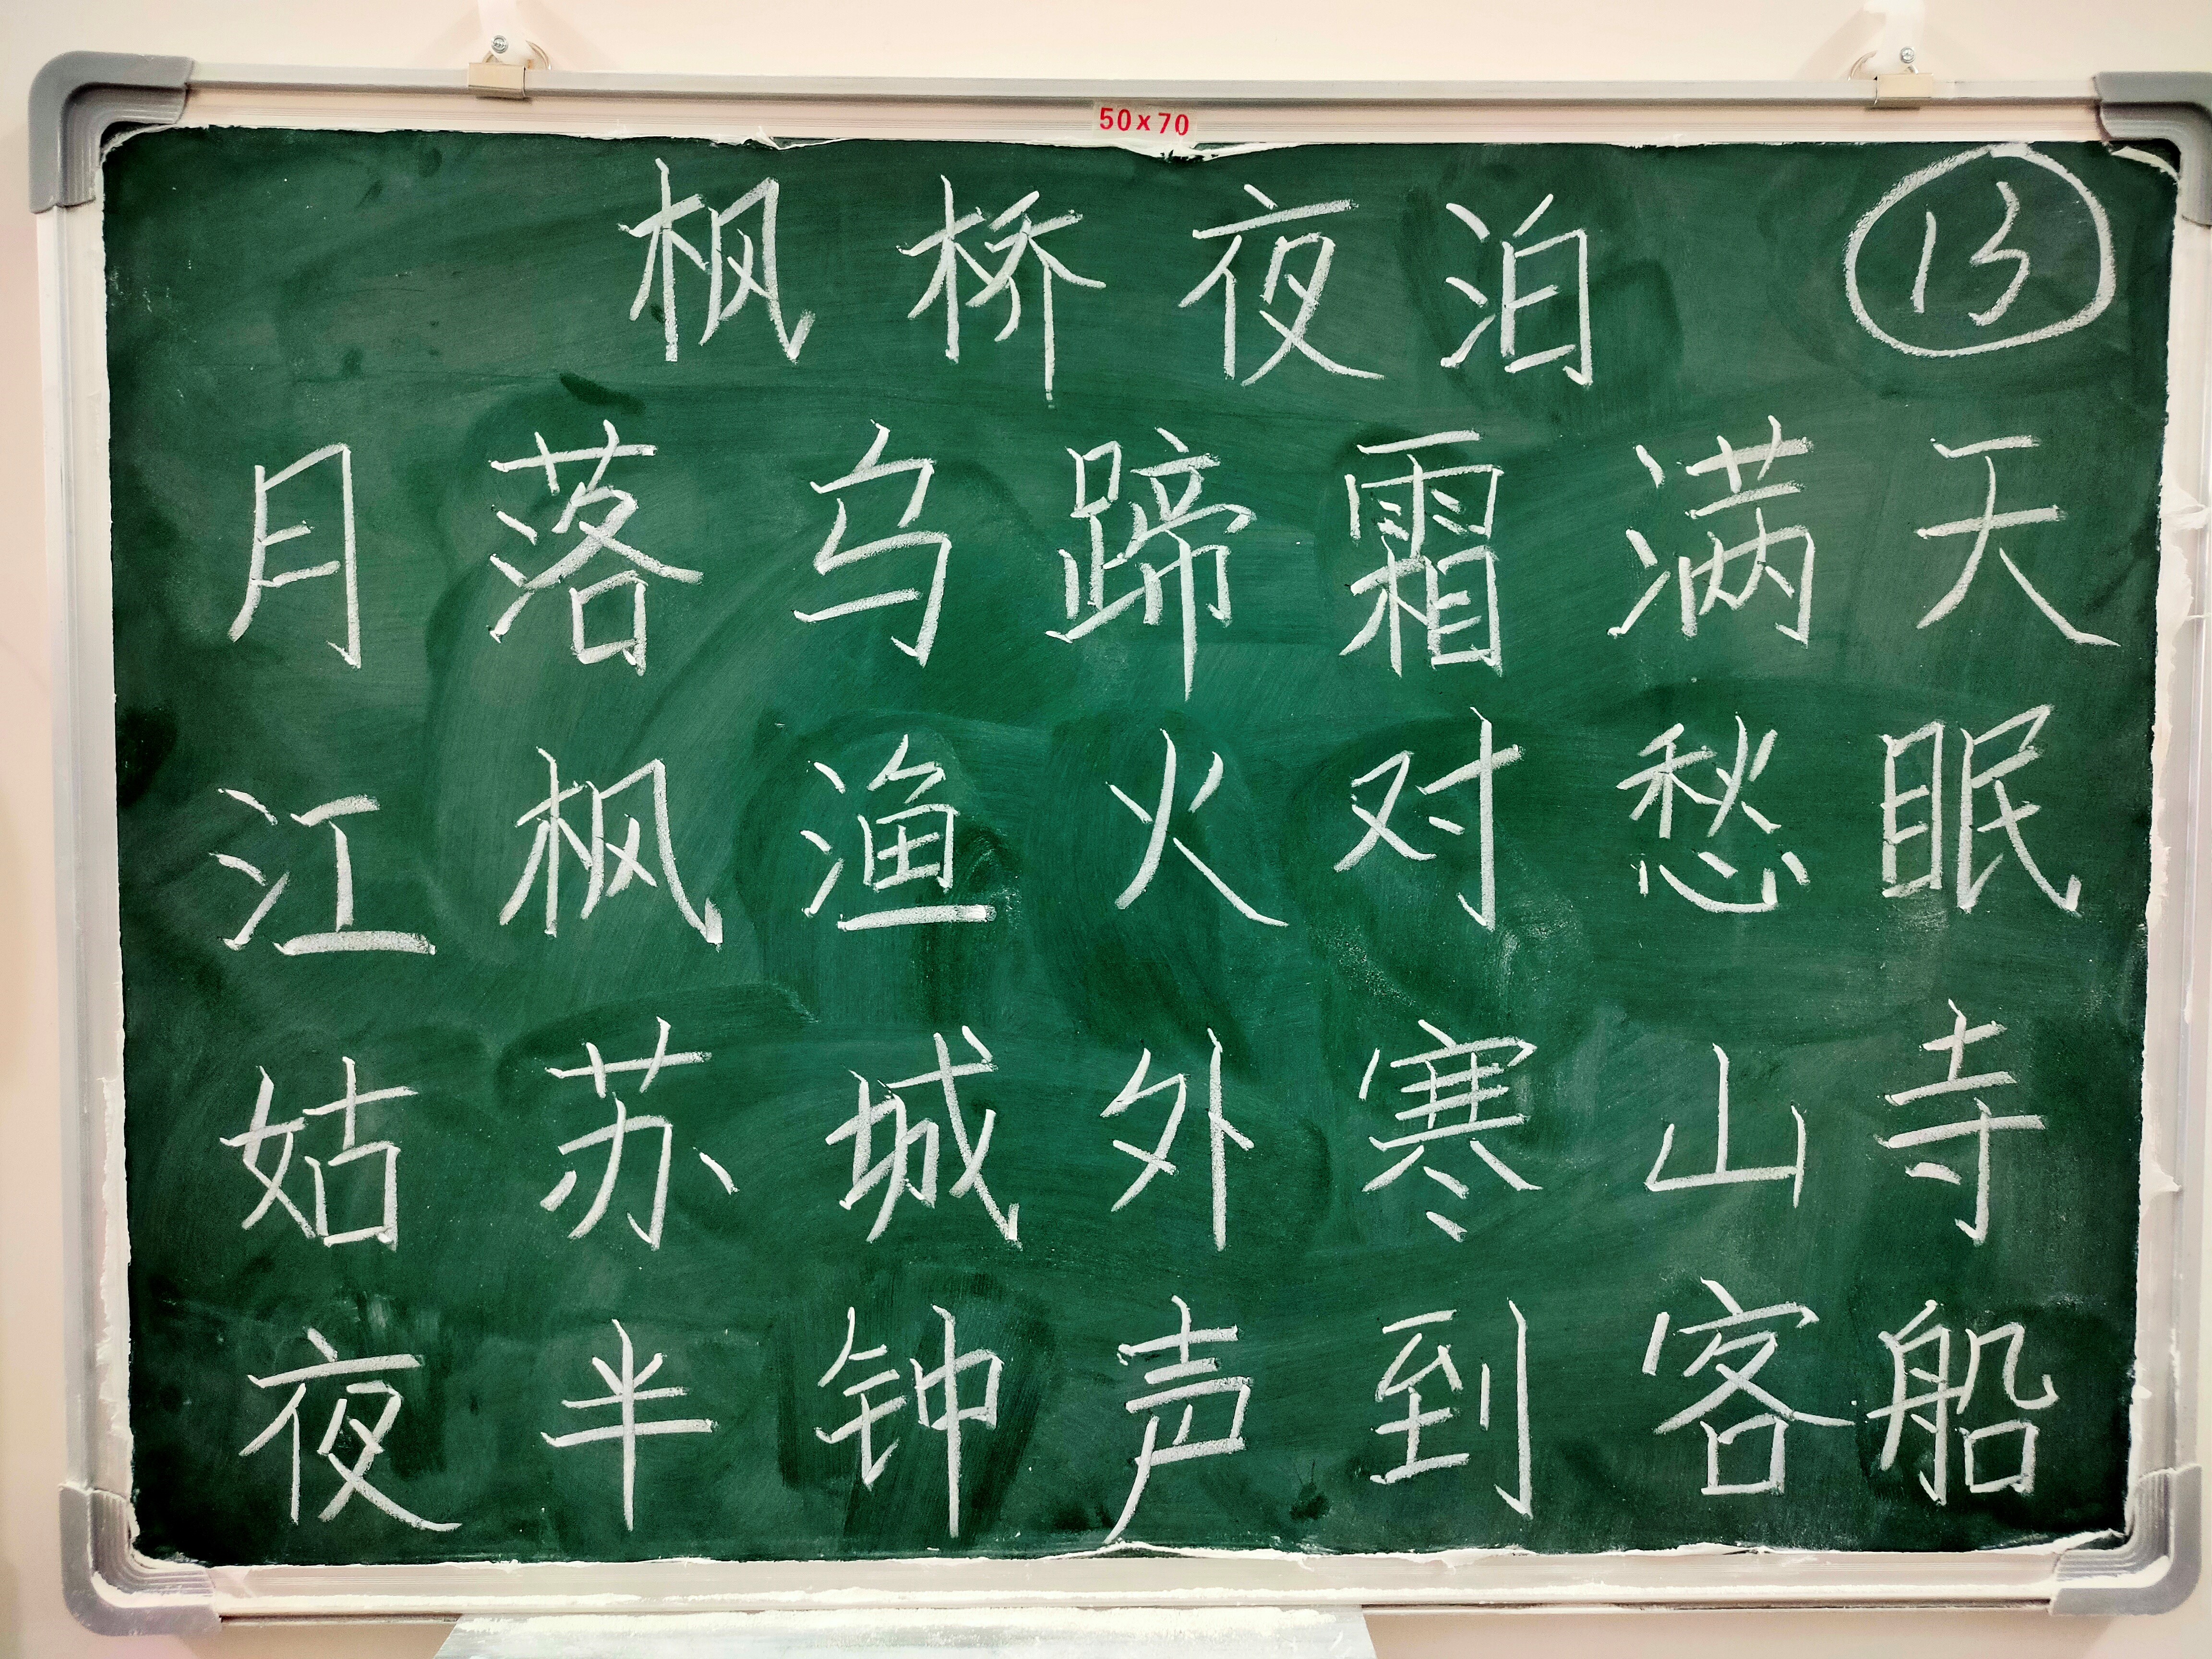 50x70
枫桥夜泊 13
月落乌蹄霜满天
江枫渔火对愁眠
姑苏城外寒山寺
夜半钟声到客船